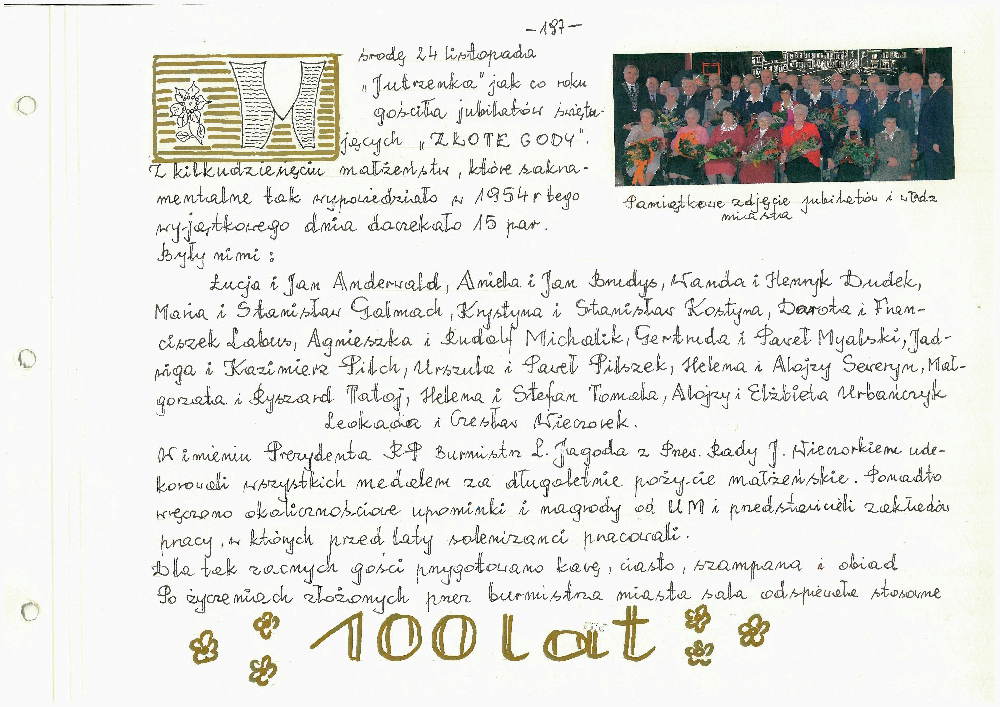 - 197 -
W środę 24 listopada
„Jutrzenka" jak co roku
gościła jubilatów świętu-
jących „ZŁOTE GODY".
Z kilkudziesięciu małżeństw, które sakra-
mentalne tak wypowiedziało w 1954r tego
wyjątkowego dnia doczekało 15 par.
Były nimi :
Pamiątkowe zdjęcie jubilatów i władz
miasta
Łucja i Jan Anderwald, Aniela i Jan Brudys, Wanda i Henryk Dudek,
Maria i Stanisław Galmach, Krystyna i Stanisław Kostyna, Dorota i Fran-
ciszek Labus, Agnieszka i Rudolf Michalik, Gertruda i Paweł Myalski, Jad-
wiga i Kazimierz Pilch, Urszula i Paweł Pilszek, Helena i Alojzy Seweryn, Mał-
gorzata i Ryszard Tatoj, Helena i Stefan Tomala, Alojzy i Elżbieta Urbańczyk
Leokadia i Czesław Wieczorek.
W imieniu Prezydenta RP Burmistrz L. Jagoda z Przew. Rady J. Wieczorkiem ude-
korowali wszystkich medalem za długoletnie pożycie małżeńskie. Ponadto
wręczono okolicznościowe upominki i nagrody od UM i przedstawicieli zakładów
pracy, w których przed laty solenizanci pracowali.
Dla tak zacnych gości przygotowano kawę, ciasto, szampana i obiad
Po życzeniach złożonych przez burmistrza miasta sala odśpiewała stosowne
100 lat